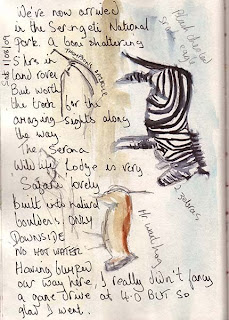 We're now arrived
in the Serengeti National
Park. A bone shattering
5 hrs in
land rover
But worth
the trek for the
amazing sights along
the way.
The Serona
Wild life Lodge is very
Safari lovely
built into natural
boulders. ONLY
DOWNSIDE
NO HOT WATER
Having bumped
our way here, I really didn't fancy
a game drive at 4.0 BUT SO
glad I went.
Sat 1/08/09
Thompsons gazelle
Black
zebras